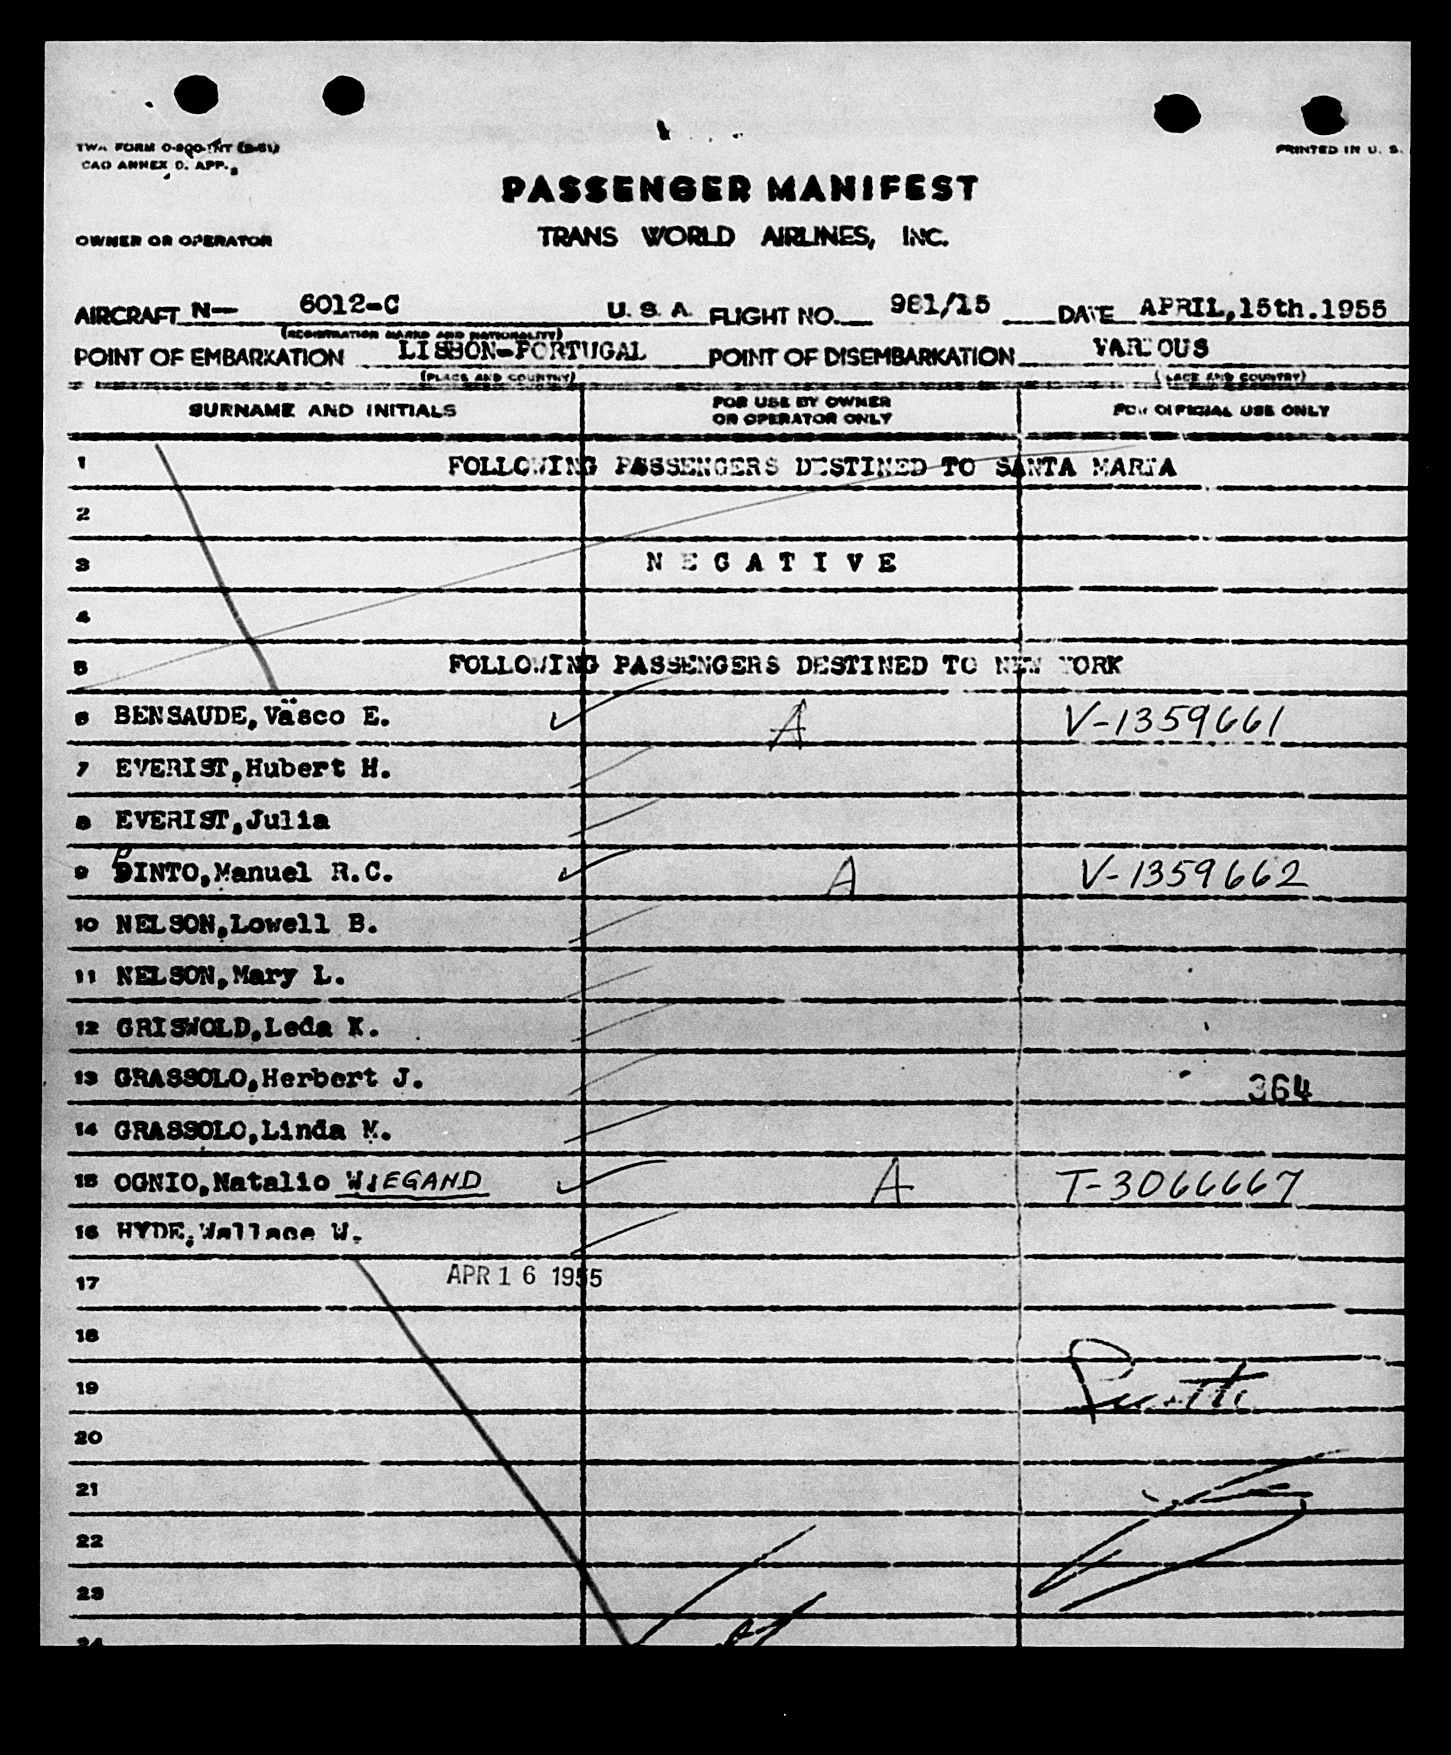 TWA FORM O-800-INT (2-51)
PRINTED IN U. S.
CAO ANNEX D. APP.
PASSENGER MANIFEST
OWNER OR OPERATOR TRANS WORLD AIRLINES, INC.
AIRCRAFT N— 6012-C U. S. A. FLIGHT NO. 981/15 DATE APRIL,15th.1955
(REGISTRATION MARKS AND NATIONALITY)
POINT OF EMBARKATION LISBON-PORTUGAL POINT OF DISEMBARKATION VARIOUS
(PLACE AND COUNTRY) (PLACE AND COUNTRY)
SURNAME AND INITIALS FOR USE BY OWNER OR OPERATOR ONLY FOR OFFICIAL USE ONLY
1 FOLLOWING PASSENGERS DESTINED TO SANTA MARIA
2
3 N E G A T I V E
4
5 FOLLOWING PASSENGERS DESTINED TO NEW YORK
6 BENSAUDE,Vasco E. A V-1359661
7 EVERIST,Hubert H.
8 EVERIST,Julia
9 PINTO,Manuel R.C. A V-1359662
10 NELSON,Lowell B.
11 NELSON,Mary L.
12 GRISWOLD,Leda K.
13 GRASSOLO,Herbert J. 364
14 GRASSOLO,Linda M.
15 OGNIO,Natalio WIEGAND A T-3066667
16 HYDE,Wallace W.
17 APR 16 1955
18
19
20
21
22
23
24